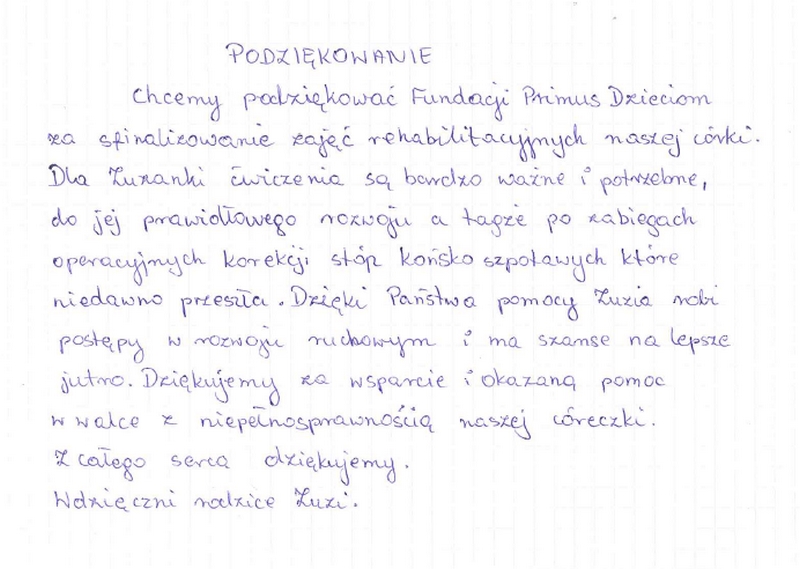 PODZIĘKOWANIE
Chcemy podziękować Fundacji Primus Dzieciom
za sfinalizowanie zajęć rehabilitacyjnych naszej córki.
Dla Zuzanki ćwiczenia są bardzo ważne i potrzebne,
do jej prawidłowego rozwoju a tagże po zabiegach
operacyjnych korekcji stóp końsko szpotawych które
niedawno przeszła. Dzięki Państwa pomocy Zuzia robi
postępy w rozwoju ruchowym i ma szanse na lepsze
jutro. Dziękujemy za wsparcie i okazaną pomoc
w walce z niepełnosprawnością naszej córeczki.
Z całego serca dziękujemy.
Wdzięczni rodzice Zuzi.